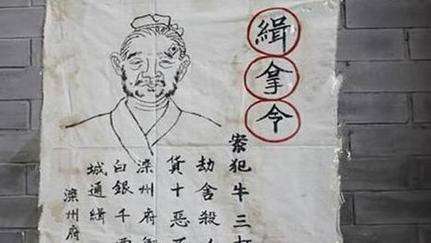 緝拿令
案犯牛三打
劫舍殺人
貨十惡不
滦州府
白銀千
城通緝
滦州府